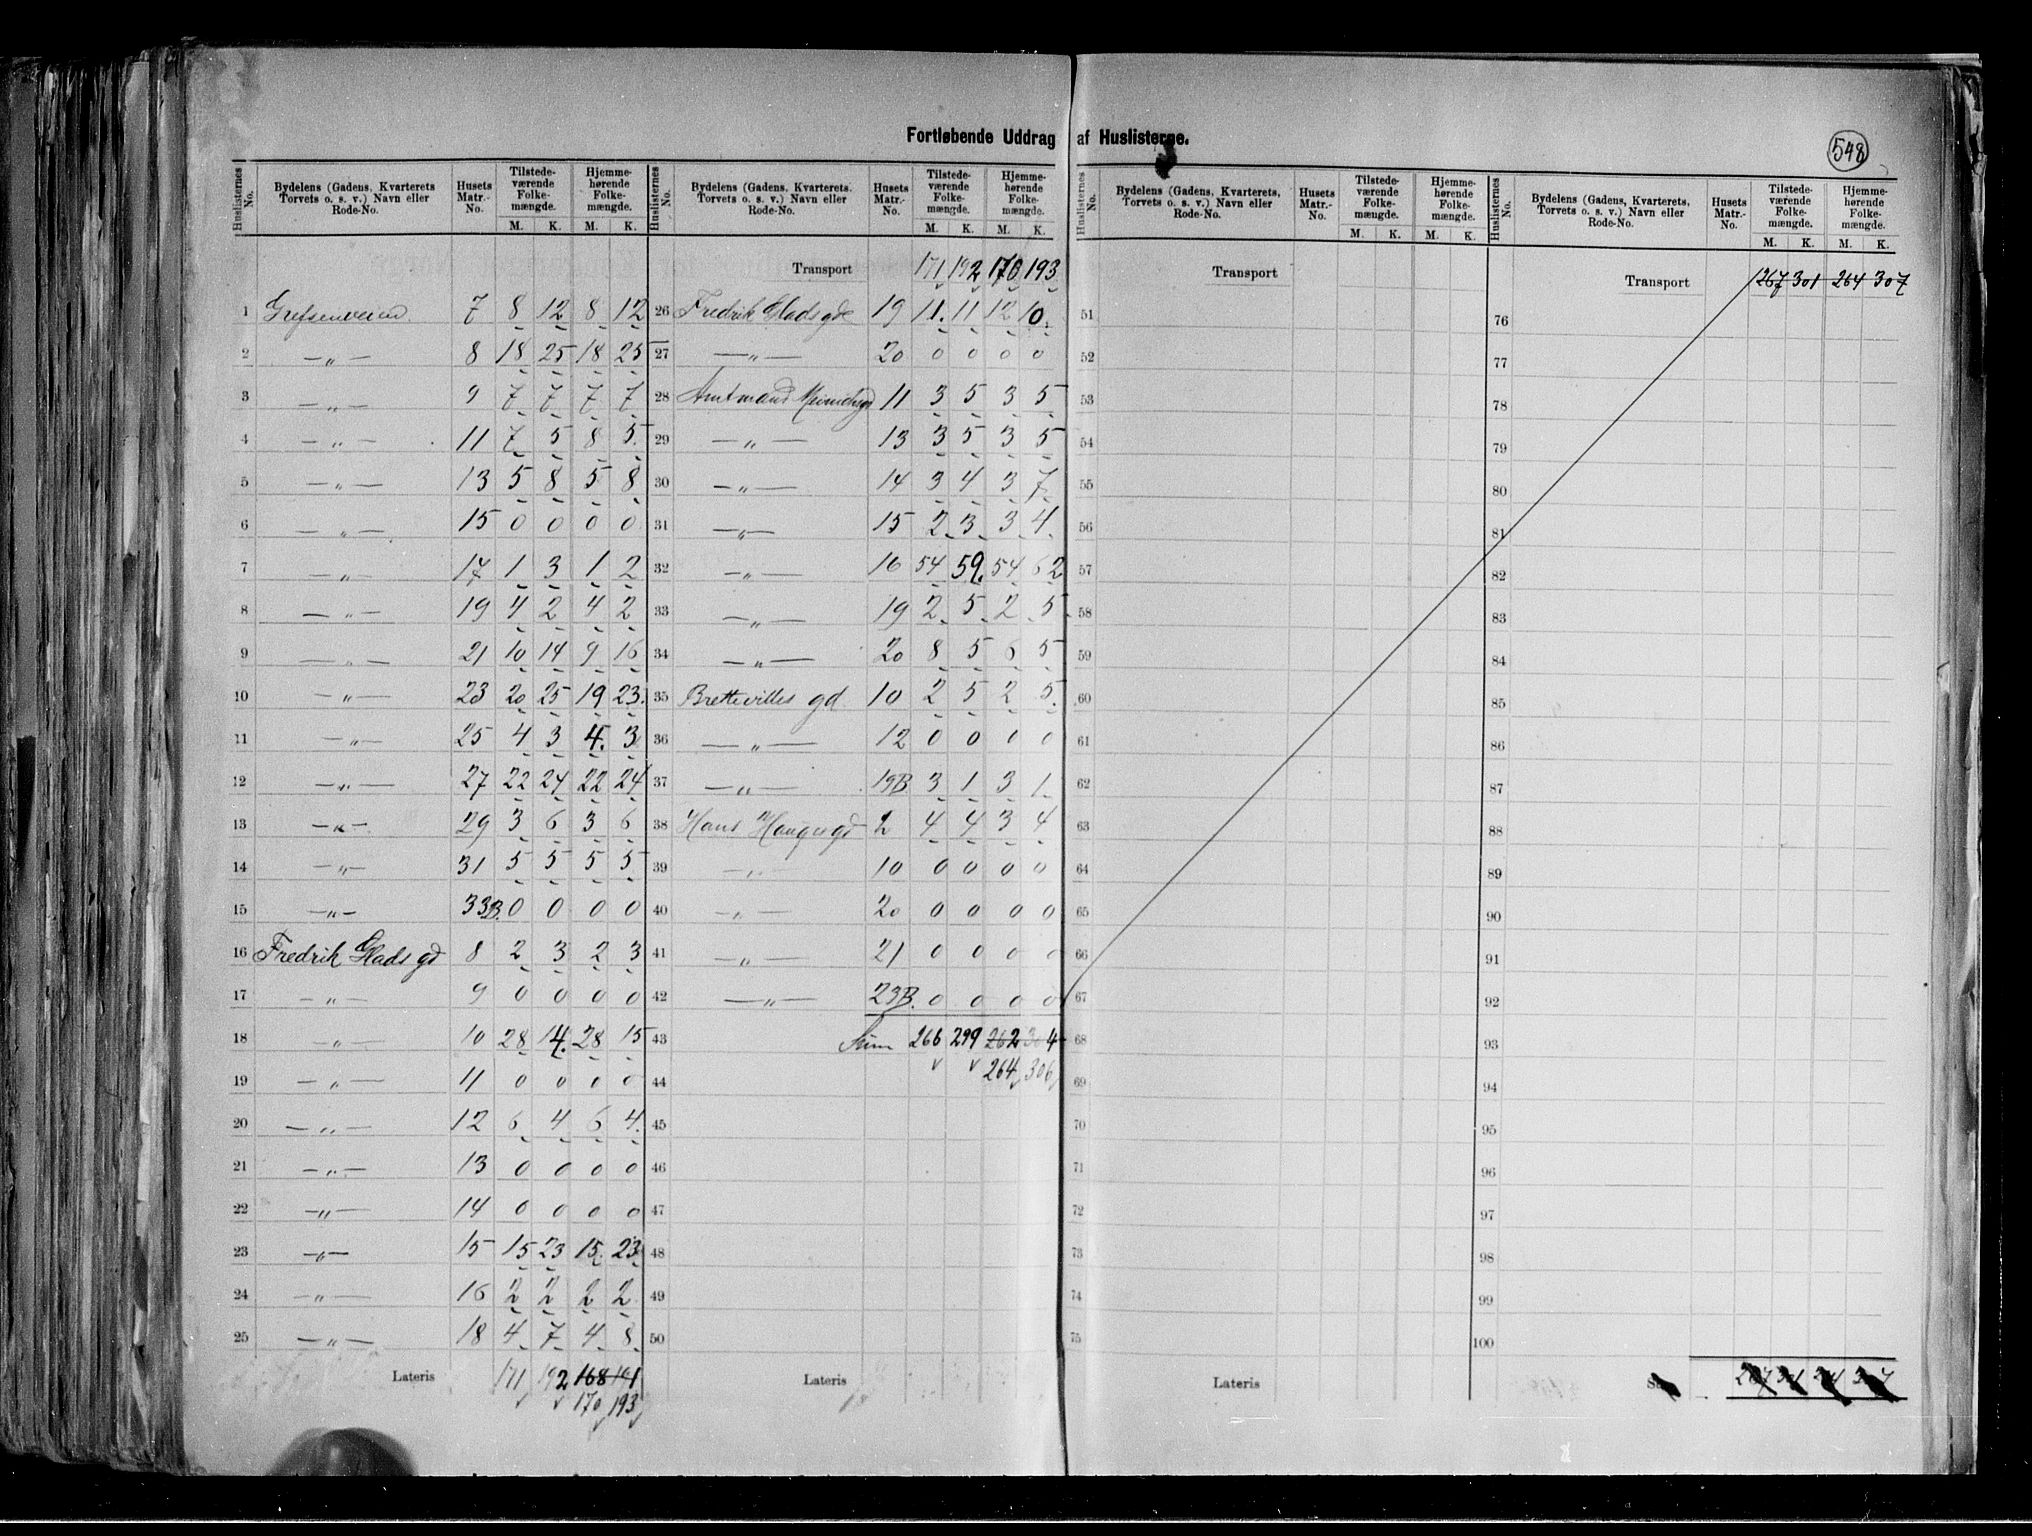 Fortløbende Uddrag af Huslisterne.
548
Huslisternes No. | Bydelens (Gadens, Kvarterets Torvets o. s. v.) Navn eller Rode-No. | Husets Matr.-No. | Tilstede-værende Folke-mængde. M. K. | Hjemme-hørende Folke-mængde. M. K.
1 Grefsenveien 7 8 12 8 12
2 —„— 8 18 25 18 25
3 —„— 9 7 7 7 7
4 —„— 11 7 5 8 5
5 —„— 13 5 8 5 8
6 —„— 15 0 0 0 0
7 —„— 17 1 3 1 2
8 —„— 19 4 2 4 2
9 —„— 21 10 14 9 16
10 —„— 23 20 25 19 23
11 —„— 25 4 3 4 3
12 —„— 27 22 24 22 24
13 —„— 29 3 6 3 6
14 —„— 31 5 5 5 5
15 —„— 33B. 0 0 0 0
16 Fredrik Glads gd 8 2 3 2 3
17 —„— 9 0 0 0 0
18 —„— 10 28 14 28 15
19 —„— 11 0 0 0 0
20 —„— 12 6 4 6 4
21 —„— 13 0 0 0 0
22 —„— 14 0 0 0 0
23 —„— 15 15 23 15 23
24 —„— 16 2 2 2 2
25 —„— 18 4 7 4 8
Lateris 171 192 168 191
170 193
Huslisternes No. | Bydelens (Gadens, Kvarterets. Torvets o. s. v.) Navn eller Rode-No. | Husets Matr.-No. | Tilstede-værende Folke-mængde. M. K. | Hjemme-hørende Folke-mængde. M. K.
Transport 171 192 170 193
26 Fredrik Glads gde 19 11 11 12 10
27 —„— 20 0 0 0 0
28 Amtmand Meinichsgd 11 3 5 3 5
29 —„— 13 3 5 3 5
30 —„— 14 3 4 3 7
31 —„— 15 2 3 3 4
32 —„— 16 54 59 54 62
33 —„— 19 2 5 2 5
34 —„— 20 8 5 6 5
35 Brettevilles gd 10 2 5 2 5
36 —„— 12 0 0 0 0
37 —„— 19B 3 1 3 1
38 Hans Hauges gd 2 4 4 3 4
39 —„— 10 0 0 0 0
40 —„— 20 0 0 0 0
41 —„— 21 0 0 0 0
42 —„— 23B. 0 0 0 0
43 Sum 266 299 262 304
264 306
44
45
46
47
48
49
50
Lateris
Huslisternes No. | Bydelens (Gadens, Kvarterets, Torvets o. s. v.) Navn eller Rode-No. | Husets Matr.-No. | Tilstede-værende Folke-mængde. M. K. | Hjemme-hørende Folke-mængde. M. K.
Transport
51
52
53
54
55
56
57
58
59
60
61
62
63
64
65
66
67
68
69
70
71
72
73
74
75
Lateris
Huslisternes No. | Bydelens (Gadens, Kvarterets, Torvets o. s. v.) Navn eller Rode-No. | Husets Matr.-No. | Tilstede-værende Folke-mængde. M. K. | Hjemme-hørende Folke-mængde. M. K.
Transport 267 301 264 307
76
77
78
79
80
81
82
83
84
85
86
87
88
89
90
91
92
93
94
95
96
97
98
99
100